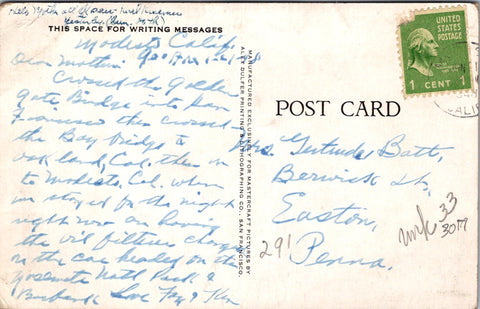 THIS SPACE FOR WRITING MESSAGES
Modesto Calif.
Dear Mother:
Crossed the Golden
Gate Bridge into San
Francisco then crossed
the Bay bridge to
Oakland, Cal. then on
to Modesto, Cal. where
we stayed for the night
right now are having
the oil filter changed
in the car headed on the
Yosemite Natl Park &
Burbank Love
MANUFACTURED EXCLUSIVELY FOR MASTERCRAFT PICTURES BY
ALEX DULFER PRINTING & LITHOGRAPHING CO., SAN FRANCISCO.
UNITED
STATES
POSTAGE
1 CENT 1
CALIF
POST CARD
Mrs. Gertrude Batt,
Berwick St,
Easton,
Penna.
291
33
3077